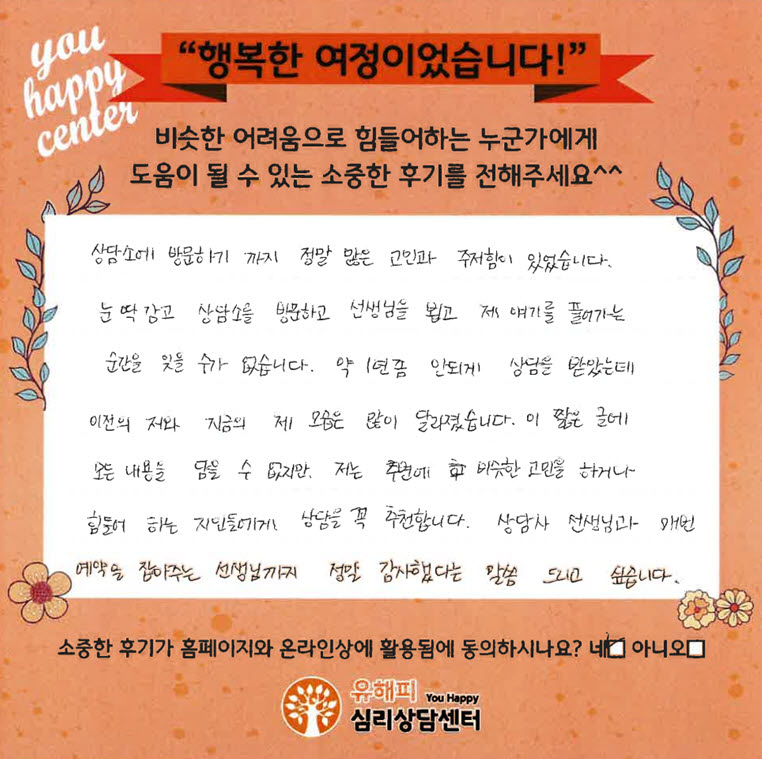 you
happy
center
“행복한 여정이었습니다!”
비슷한 어려움으로 힘들어하는 누군가에게
도움이 될 수 있는 소중한 후기를 전해주세요^^
상담소에 방문하기 까지 정말 많은 고민과 주저함이 있었습니다.
눈 딱 감고 상담소를 방문하고 선생님을 뵙고 제 얘기를 풀어가는
순간을 잊을 수가 없습니다. 약 1년쯤 안되게 상담을 받았는데
이전의 저와 지금의 제 모습은 많이 달라졌습니다. 이 짧은 글에
모든 내용을 담을 수 없지만, 저는 주변에 비슷한 고민을 하거나
힘들어 하는 지인들에게 상담을 꼭 추천합니다. 상담사 선생님과 매번
예약을 잡아주는 선생님까지 정말 감사했다는 말씀 드리고 싶습니다.
소중한 후기가 홈페이지와 온라인상에 활용됨에 동의하시나요? 네 아니오
유해피 You Happy
심리상담센터